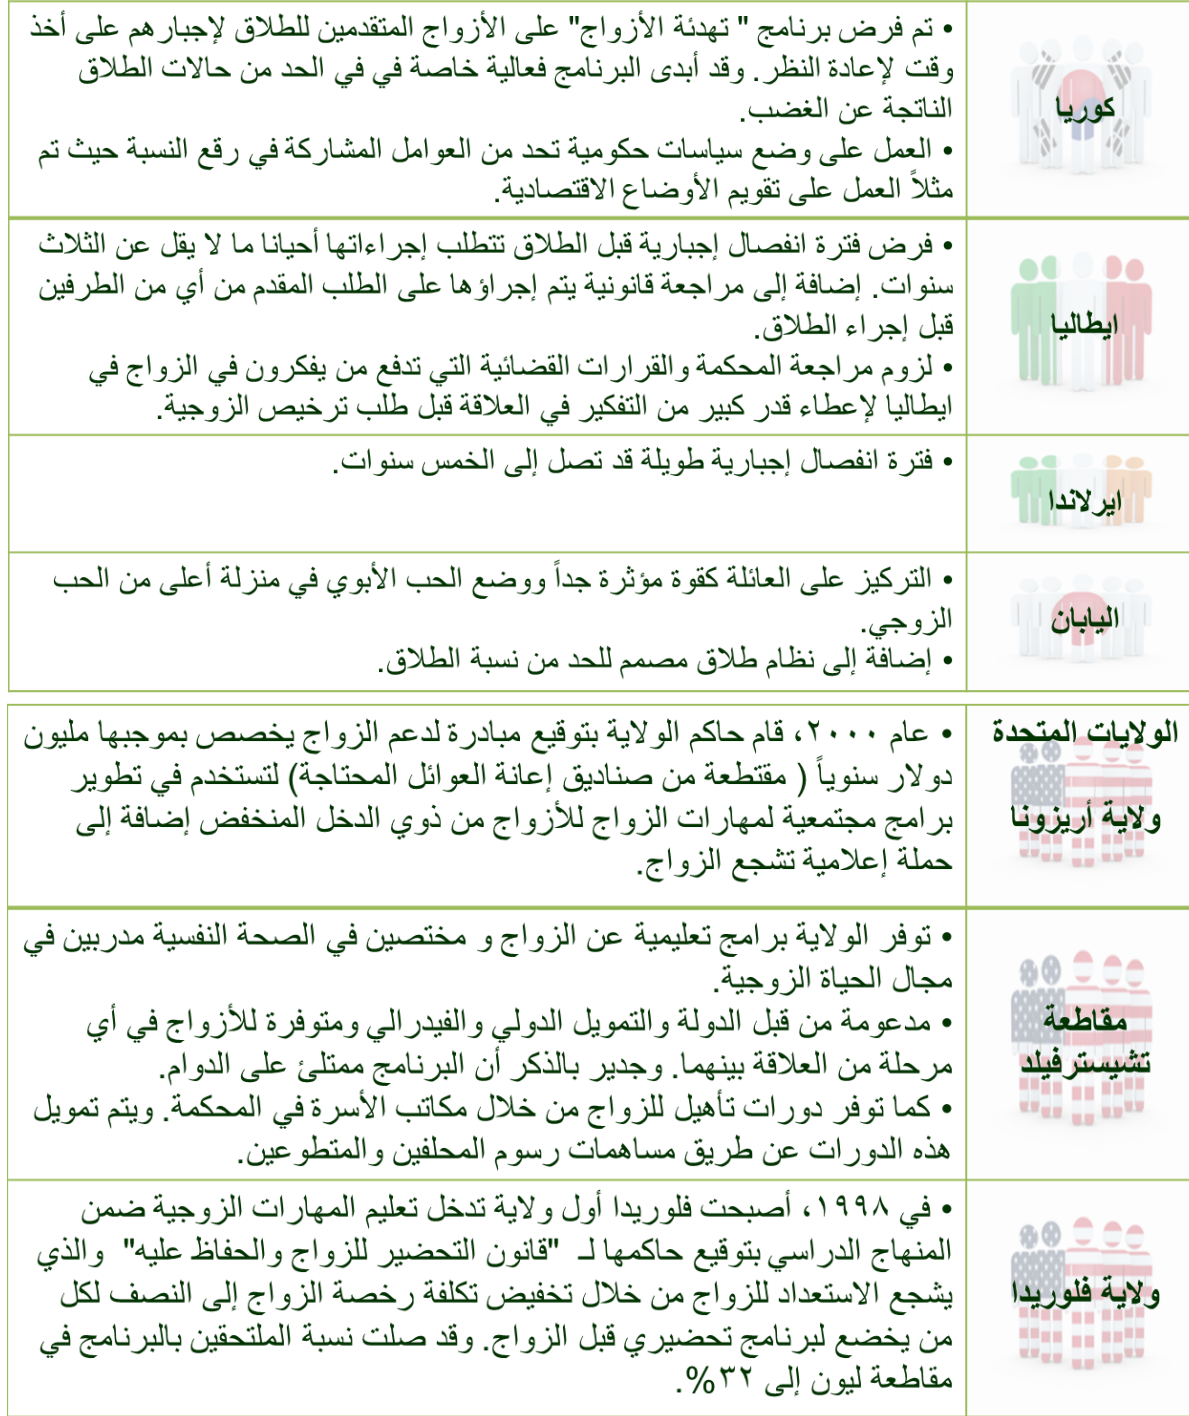 كوريا
• تم فرض برنامج " تهدئة الأزواج" على الأزواج المتقدمين للطلاق لإجبارهم على أخذ
وقت لإعادة النظر. وقد أبدى البرنامج فعالية خاصة في في الحد من حالات الطلاق
الناتجة عن الغضب.
• العمل على وضع سياسات حكومية تحد من العوامل المشاركة في رقع النسبة حيث تم
مثلاً العمل على تقويم الأوضاع الاقتصادية.
ايطاليا
• فرض فترة انفصال إجبارية قبل الطلاق تتطلب إجراءاتها أحيانا ما لا يقل عن الثلاث
سنوات. إضافة إلى مراجعة قانونية يتم إجراؤها على الطلب المقدم من أي من الطرفين
قبل إجراء الطلاق.
• لزوم مراجعة المحكمة والقرارات القضائية التي تدفع من يفكرون في الزواج في
ايطاليا لإعطاء قدر كبير من التفكير في العلاقة قبل طلب ترخيص الزوجية.
ايرلاندا
• فترة انفصال إجبارية طويلة قد تصل إلى الخمس سنوات.
اليابان
• التركيز على العائلة كقوة مؤثرة جداً ووضع الحب الأبوي في منزلة أعلى من الحب
الزوجي.
• إضافة إلى نظام طلاق مصمم للحد من نسبة الطلاق.
الولايات المتحدة
ولاية أريزونا
• عام ٢٠٠٠، قام حاكم الولاية بتوقيع مبادرة لدعم الزواج يخصص بموجبها مليون
دولار سنوياً ( مقتطعة من صناديق إعانة العوائل المحتاجة) لتستخدم في تطوير
برامج مجتمعية لمهارات الزواج للأزواج من ذوي الدخل المنخفض إضافة إلى
حملة إعلامية تشجع الزواج.
مقاطعة
تشيسترفيلد
• توفر الولاية برامج تعليمية عن الزواج و مختصين في الصحة النفسية مدربين في
مجال الحياة الزوجية.
• مدعومة من قبل الدولة والتمويل الدولي والفيدرالي ومتوفرة للأزواج في أي
مرحلة من العلاقة بينهما. وجدير بالذكر أن البرنامج ممتلئ على الدوام.
• كما توفر دورات تأهيل للزواج من خلال مكاتب الأسرة في المحكمة. ويتم تمويل
هذه الدورات عن طريق مساهمات رسوم المحلفين والمتطوعين.
ولاية فلوريدا
• في ١٩٩٨، أصبحت فلوريدا أول ولاية تدخل تعليم المهارات الزوجية ضمن
المنهاج الدراسي بتوقيع حاكمها لـ "قانون التحضير للزواج والحفاظ عليه" والذي
يشجع الاستعداد للزواج من خلال تخفيض تكلفة رخصة الزواج إلى النصف لكل
من يخضع لبرنامج تحضيري قبل الزواج. وقد صلت نسبة الملتحقين بالبرنامج في
مقاطعة ليون إلى ٣٢%.